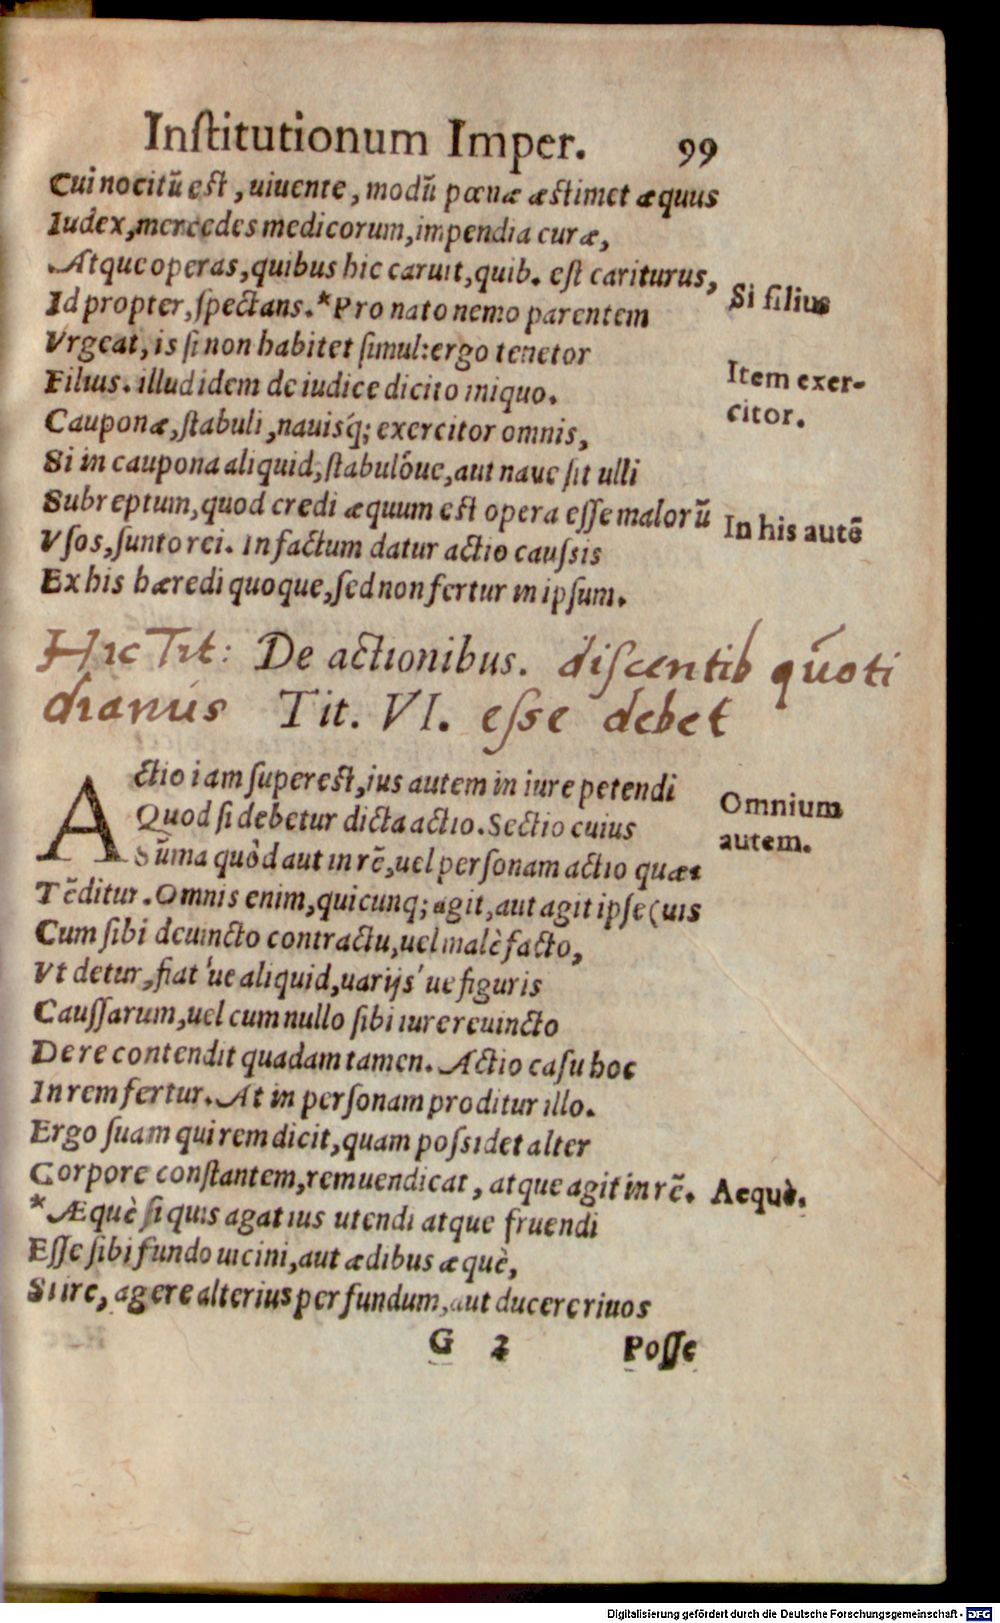 Inſtitutionum Imper. 99
Cui nocitũ eſt, uiuente, modũ pœnæ æstimet æquus
Iudex, mercedes medicorum, impendia curæ,
Atque operas, quibus hic caruit, quib. eſt cariturus,
Id propter, ſpectans. *Pro nato nemo parentem
Si filius
Vrgeat, is ſi non habitet ſimul: ergo tenetor
Filius. illud idem de iudice dicito iniquo.
Item exer-
citor.
Cauponæ, ſtabuli, nauisq́; exercitor omnis,
Si in caupona aliquid, ſtabulóue, aut naue ſit ulli
Subreptum, quod credi æquum est opera eſſe malorũ
In his autẽ
Vſos, ſunto rei. In factum datur actio cauſsis
Ex his hæredi quoque, ſed non fertur in ipſum.
Hic Tit: De actionibus. diſcentib quoti
dianus Tit. VI. eſse debet
Actio iam ſupereſt, ius autem in iure petendi
Quod ſi debetur dicta actio. Sectio cuius
Omnium
autem.
Sũma quòd aut in rẽ, uel perſonam actio quæ
Tẽditur. Omnis enim, quicunq; agit, aut agit ipſe (uis
Cum ſibi deuincto contractu, uel malè facto,
Vt detur, fiat'ue aliquid, uarijs'ue figuris
Cauſſarum, uel cum nullo ſibi iure reuincto
De re contendit quadam tamen. Actio caſu hoc
In rem fertur. At in perſonam proditur illo.
Ergo ſuam qui rem dicit, quam poſsidet alter
Corpore conſtantem, rem uendicat, atque agit in rẽ.
Aequè.
*Æquè ſi quis agat ius utendi atque fruendi
Eſſe ſibi fundo uicini, aut ædibus æquè,
Si ire, agere alterius per fundum, aut ducere riuos
G 2 Poſſe